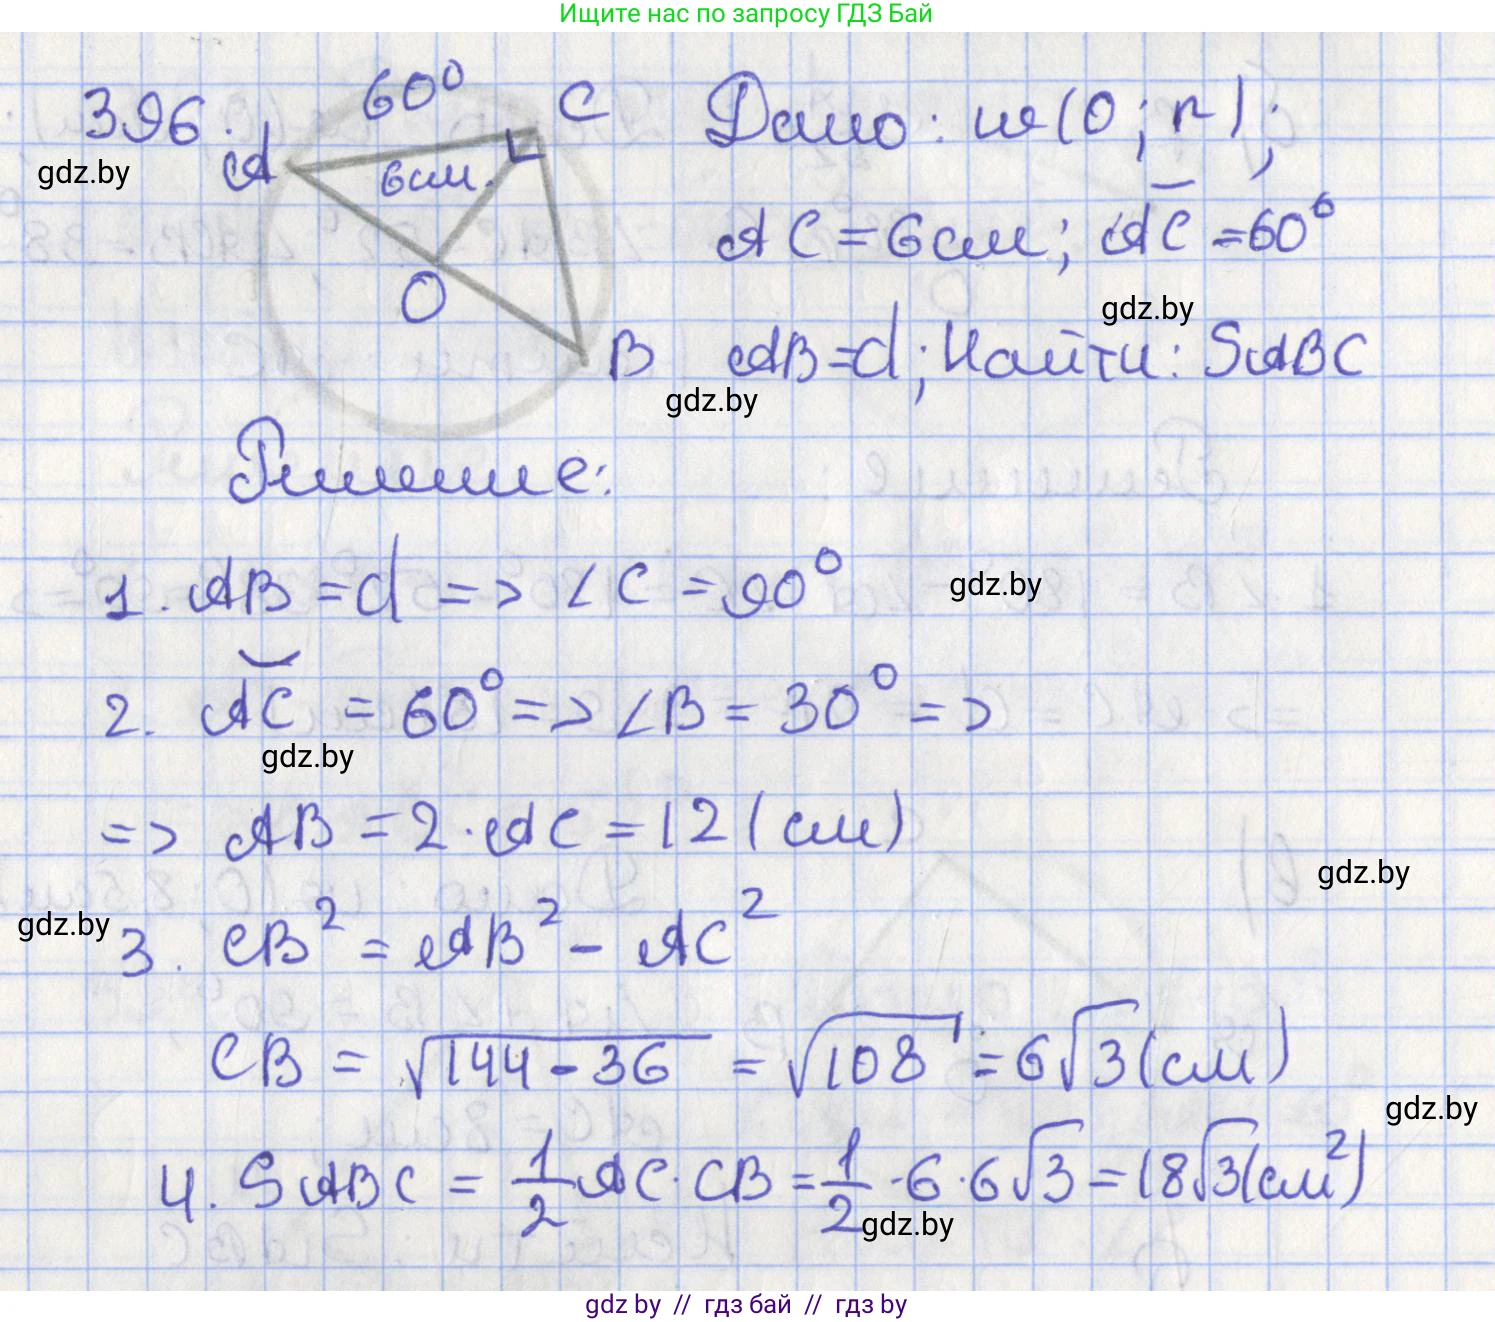 Ищите нас по запросу ГДЗ Бай
396.
60⁰
C
A
6см.
O
B
gdz.by
Дано: w(O; r);
AC = 6см; AC = 60⁰
gdz.by
AB = d; Найти: SABC
gdz.by
Решение:
1. AB = d => ∠C = 90⁰
gdz.by
2. AC = 60⁰ => ∠B = 30⁰ =>
gdz.by
=> AB = 2 · AC = 12 (см)
gdz.by
gdz.by
3. CB² = AB² - AC²
CB = √144 - 36 = √108 = 6√3 (см)
gdz.by
4. SABC = 1/2 AC · CB = 1/2 · 6 · 6√3 = 18√3 (см²)
gdz.by
gdz by // гдз бай // гдз by